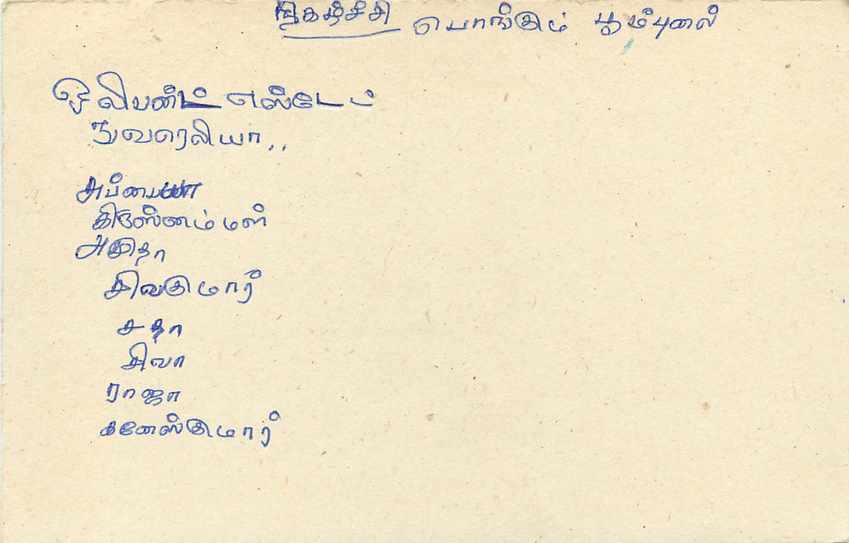 நிகழ்ச்சி பொங்கும் பூம்புனல்
ஒலிபண்ட் எஸ்டேட்
நுவரெலியா..
அப்பையா
கிருஸ்ணம்மள்
அமுதா
சிவகுமார்
சதா
சிவா
ராஜா
கனேஸ்குமார்